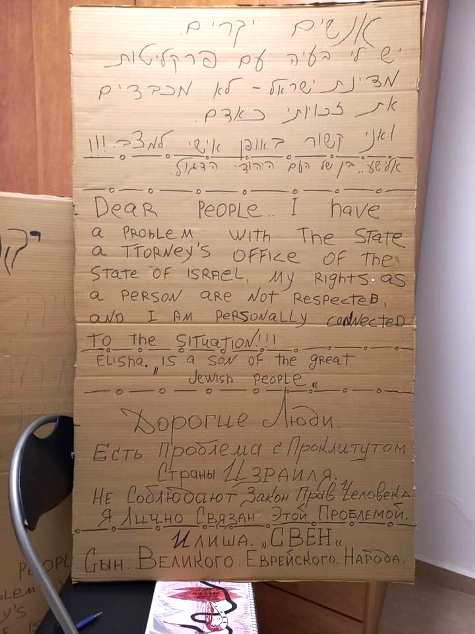 אנשים יקרים
יש לי בעיה עם פרקליטות
מדינת ישראל - לא מכבדים
את זכויותי כאדם.
ואני קשור באופן אישי למצב!!!
אלישע.. בן של העם היהודי הגדול.
Dear People.. I have
a problem with the State
a TTorney's office of the
State of Israel. My Rights. as
a person are not respected,
and I am personally connected
to the situation!!!
Elisha. „ is a son of the great
Jewish people „
Дорогие Люди.
Есть Проблема с Проклитутом
Страны Израиля.
Не Соблюдают Закон Прав Человека
Я Лично Связан Этой Проблемой.
Илиша. „СВЕН“
Сын. Великого. Еврейского. Народа.